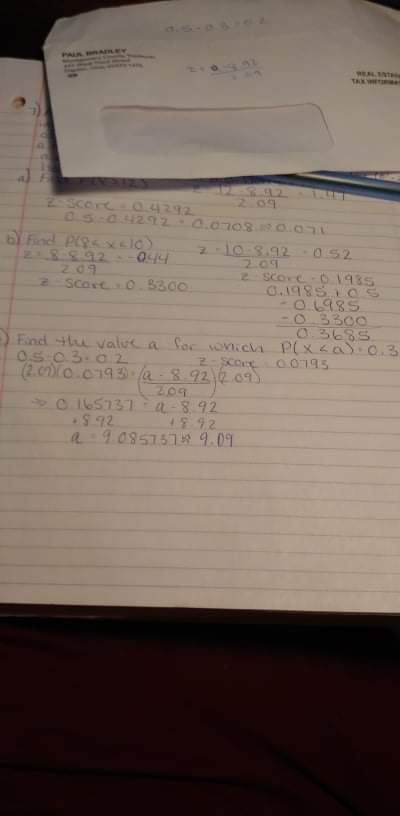 0.5 - 0.3 = 0.2
PAUL BRADLEY
z = 0 - 8.92
2.09
REAL ESTATE
TAX INFORMA
7)
a)
12 - 8.92 = 1.47
2.09
z-score = 0.4292
0.5 - 0.4292 = 0.0708 ≈ 0.071
b) Find P(8 < x < 10)
z = 8 - 8.92 = -0.44
2.09
z = 10 - 8.92 = 0.52
2.09
z-score = 0.3300
z-score = 0.1985
0.1985 + 0.5
= 0.6985
- 0.3300
0.3685
) Find the value a for which P(x < a) = 0.3
0.5 - 0.3 = 0.2
z-score = 0.0793
(2.09)(0.0793) = (a - 8.92)(2.09)
2.09
⇒ 0.165737 = a - 8.92
+8.92 +8.92
a = 9.085737 ≈ 9.09